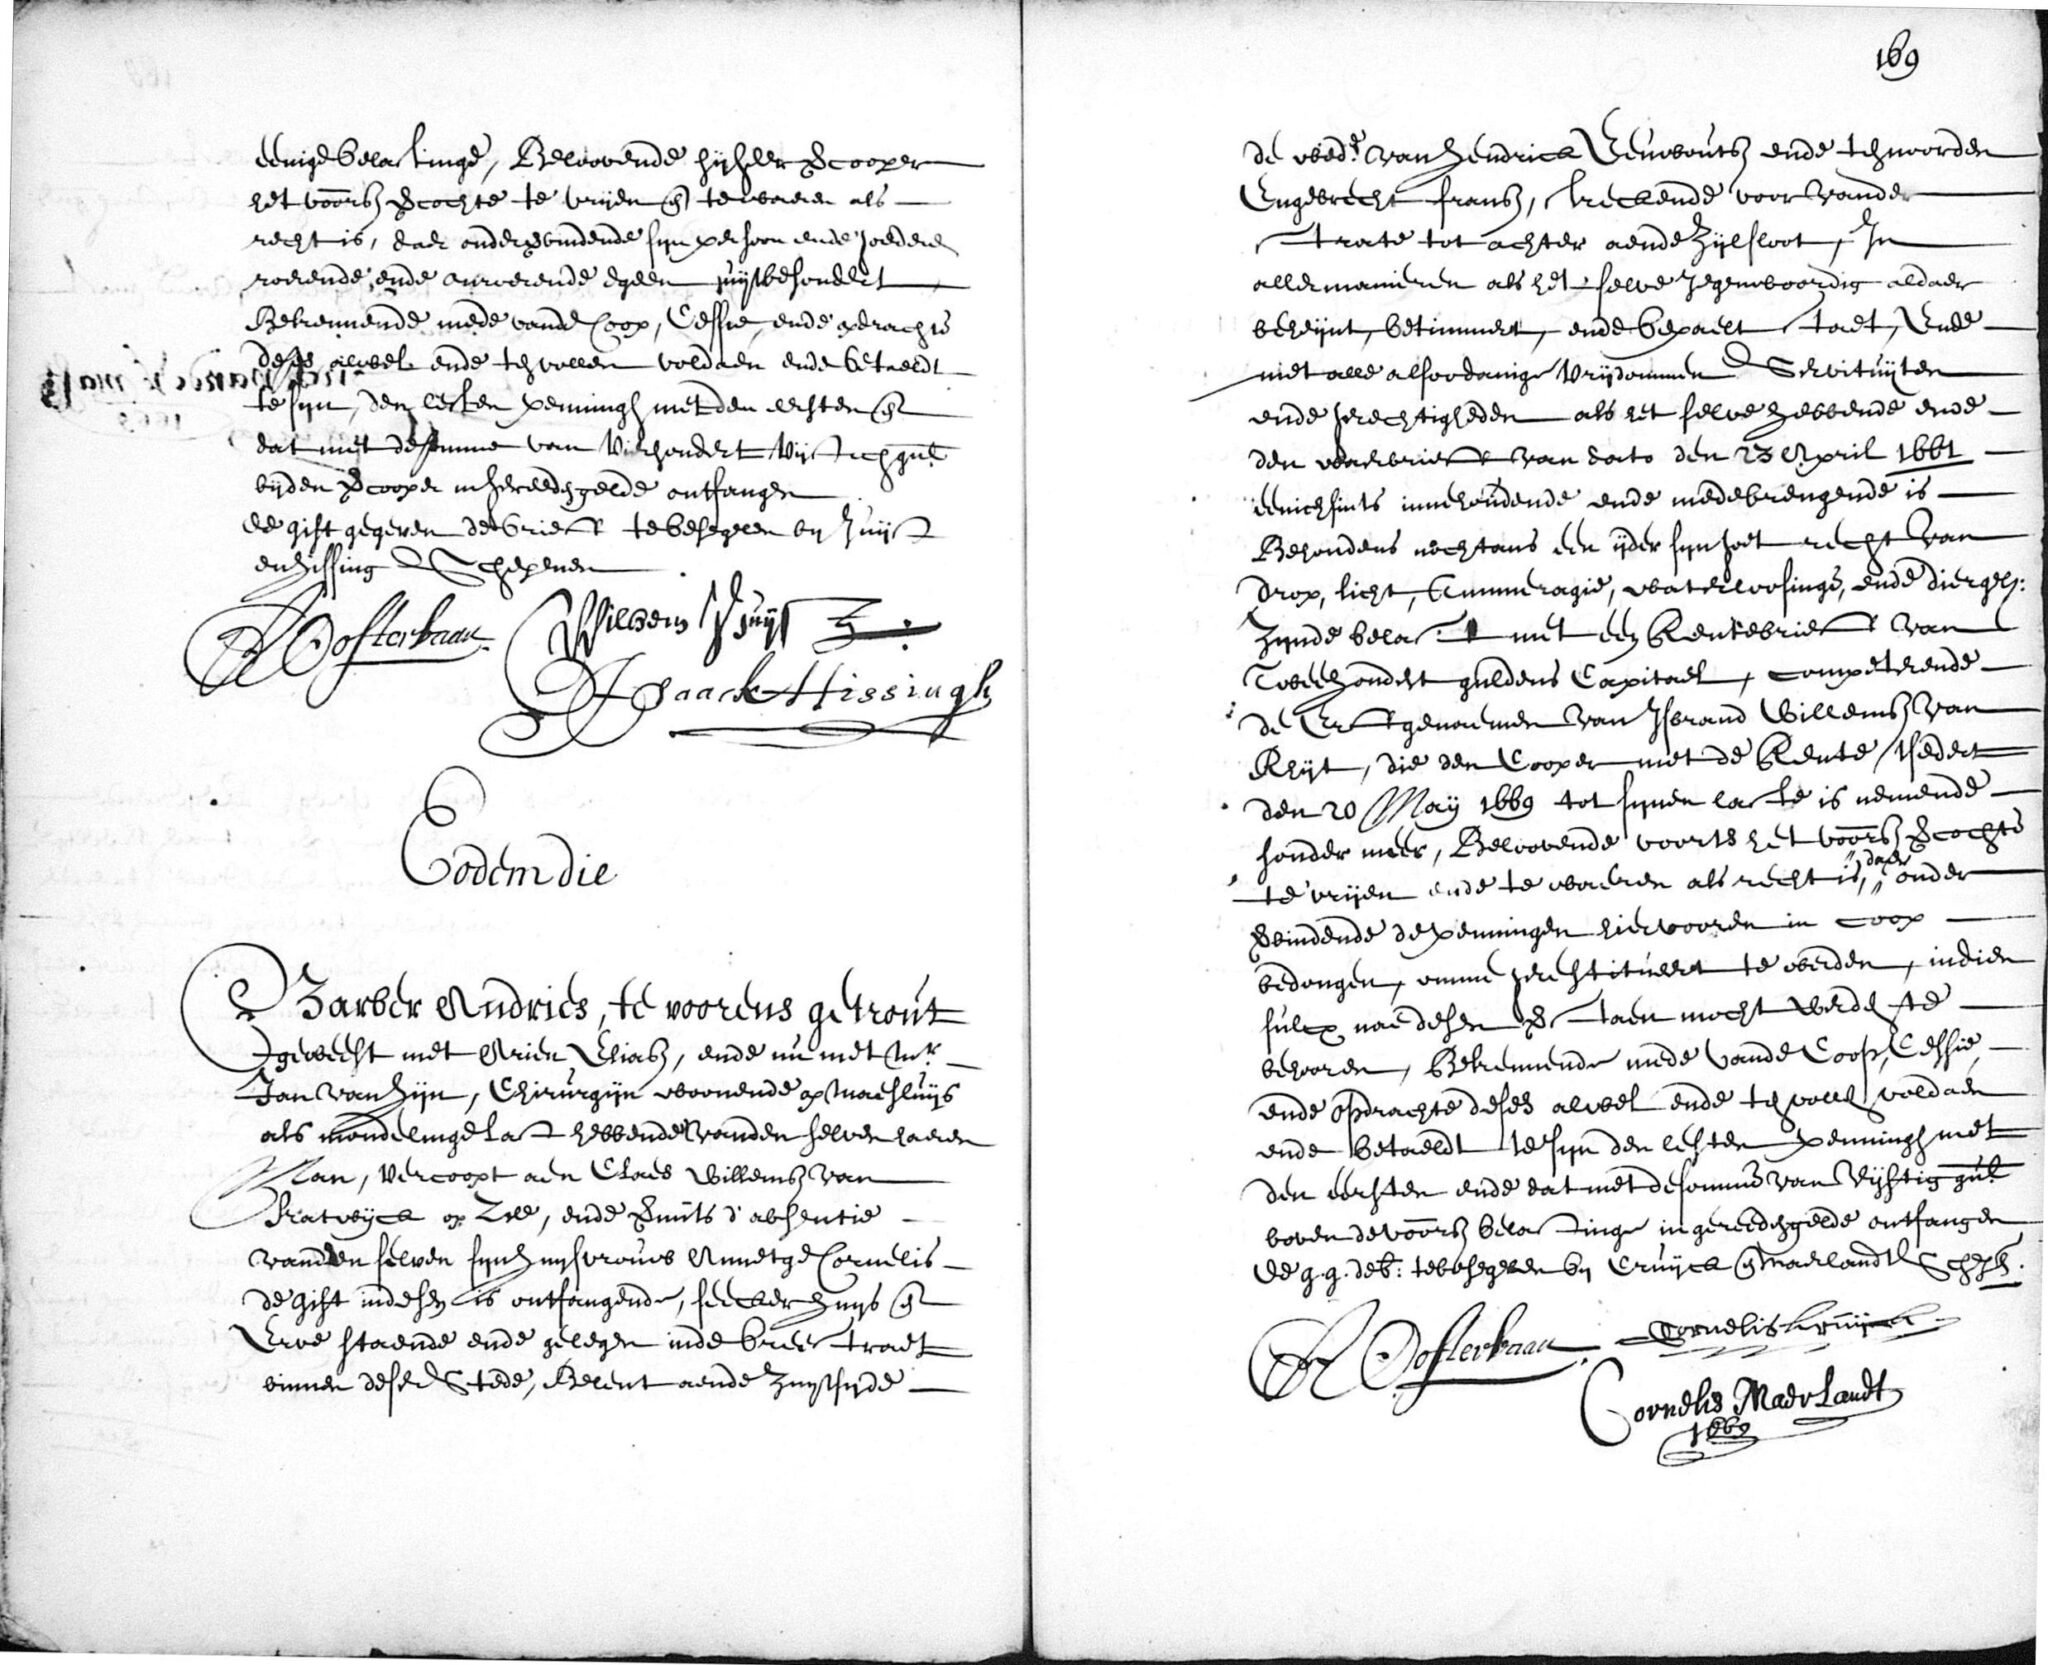 eenige belastinge, Beloovende hij heer vercooper
het voors vercochte te vrijen en te waeren als
recht is, daer onder verbindende sijn persoon ende goederen
roerende ende onroerende egeen uijtbesondert
Bekennende mede vande Coop, Cessie, ende opdrachte
deses alwel ende ten vollen voldaen ende betaeldt
te sijn, den lesten penningh met den eersten en
dat met de somme van Vierhondert Vijftich gul
bij den vercooper in gereedsgelde ontfangen
de gift gegeven de brieff te besegelen bij Huijst
en Hissing Schepenen
Oosterbaan
Willem Huijst
Isaack Hissingh
Eodem die
Barber Andries, te voorens getrout
geweest met Arien Eliasz, ende nu met Mr
Jan van Zijn, Chirurgijn woonende op Maesluijs
als mondelinge last hebbende vanden selven haeren
Man, vercoopt aen Claes Willemsz van
Catwijck op Zee, ende vermits d'absentie
vanden selven sijn huijsvrouw Annetge Cornelis
de gift in desen is ontfangende, seecker huijs en
Erve staende ende gelegen inde breestraet
binnen deser Stede, Belent aende Zuijtsijde
169
de wede van Hendrick Leuwoutsz ende ten noorden
Engebrecht Fransz, streckende voor vander
strate tot achter aende Zijlsloot, In
aller manieren als het selve Jegenwoordig aldaer
beheijnt, betimmert, ende bepaelt staet, Ende
met alle alsoodanige Vrijdommen Servituijten
ende gerechtigheden als het selve hebbende ende
den waerbrieff van dato den 23 April 1661
eenichsints innehoudende ende medebrengende is
Behoudens nochtans een ijder sijn goet recht van
drop, licht, Cummeragie, waterloosinge, ende diergel:
Zijnde belast met een Rentebrieff van
Tweehondert guldens Capitael, competerende
de Erffgenaemen van Isbrand Willemsz van
Rhijt, die den Cooper met de Rente tsedert
den 20 Maij 1669 tot sijnen laste is nemende
sonder meer, Beloovende voorts het voors vercochte
te vrijen ende te waeren als recht is, daer onder
verbindende de penningen hiervooren in coop
bedongen, omme gerestitueert te werden, indien
sulcx nae desen verstaen mocht werden te
behooren, Bekennende mede vande Coop, Cessie,
ende opdrachte deses alwel ende ten vollen voldaen
ende betaeldt te sijn den lesten penningh met
den eersten ende dat met de somme van Vijftig gul
boven de voors belastinge in gereedsgelde ontfangen
de g.g. de b: te besegelen bij Cruijck en Maerlandt Schep.
Oosterbaan
Cornelis Kruijck
Cornelis Maerlandt
1669